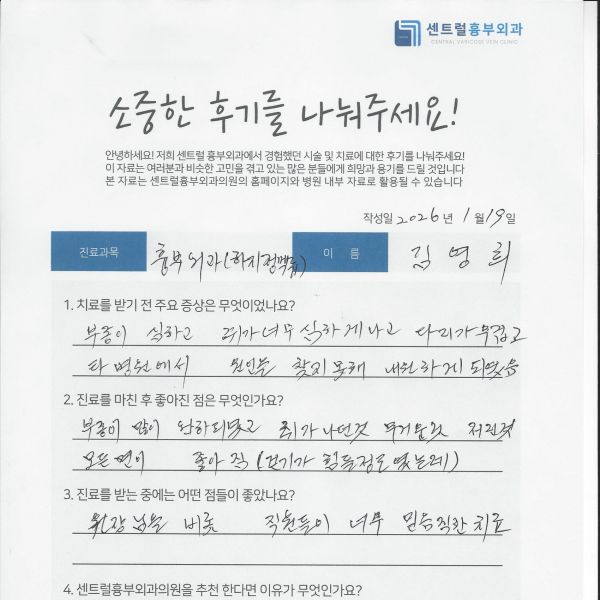 센트럴흉부외과
CENTRAL VARICOSE VEIN CLINIC
소중한 후기를 나눠주세요!
안녕하세요! 저희 센트럴 흉부외과에서 경험했던 시술 및 치료에 대한 후기를 나눠주세요!
이 자료는 여러분과 비슷한 고민을 겪고 있는 많은 분들에게 희망과 용기를 드릴 것입니다
본 자료는 센트럴흉부외과의원의 홈페이지와 병원 내부 자료로 활용될 수 있습니다
작성일 2026 년 1 월 19 일
진료과목 흉부외과(하지정맥류) 이 름 김영희
1. 치료를 받기 전 주요 증상은 무엇이었나요?
부종이 심하고 쥐가 너무 심하게 나고 다리가 무겁고
타 병원에서 원인을 찾지 못해 내원하게 되었음
2. 진료를 마친 후 좋아진 점은 무엇인가요?
부종이 많이 완하되었고 쥐가 나던것 무거운것 저린것
모든면이 좋아짐 (걷기가 힘들정도였는데)
3. 진료를 받는 중에는 어떤 점들이 좋았나요?
원장님을 비롯 직원들이 너무 믿음직한 치료
4. 센트럴흉부외과의원을 추천 한다면 이유가 무엇인가요?